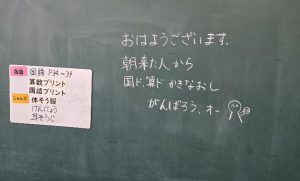 国語 国語 P34~39
算数プリント
国語プリント
しゅくだい 体そう服
けんこう
耳そうじ
おはようございます。
朝来た人から
国ド、算ド かきなおし
がんばろう、オー